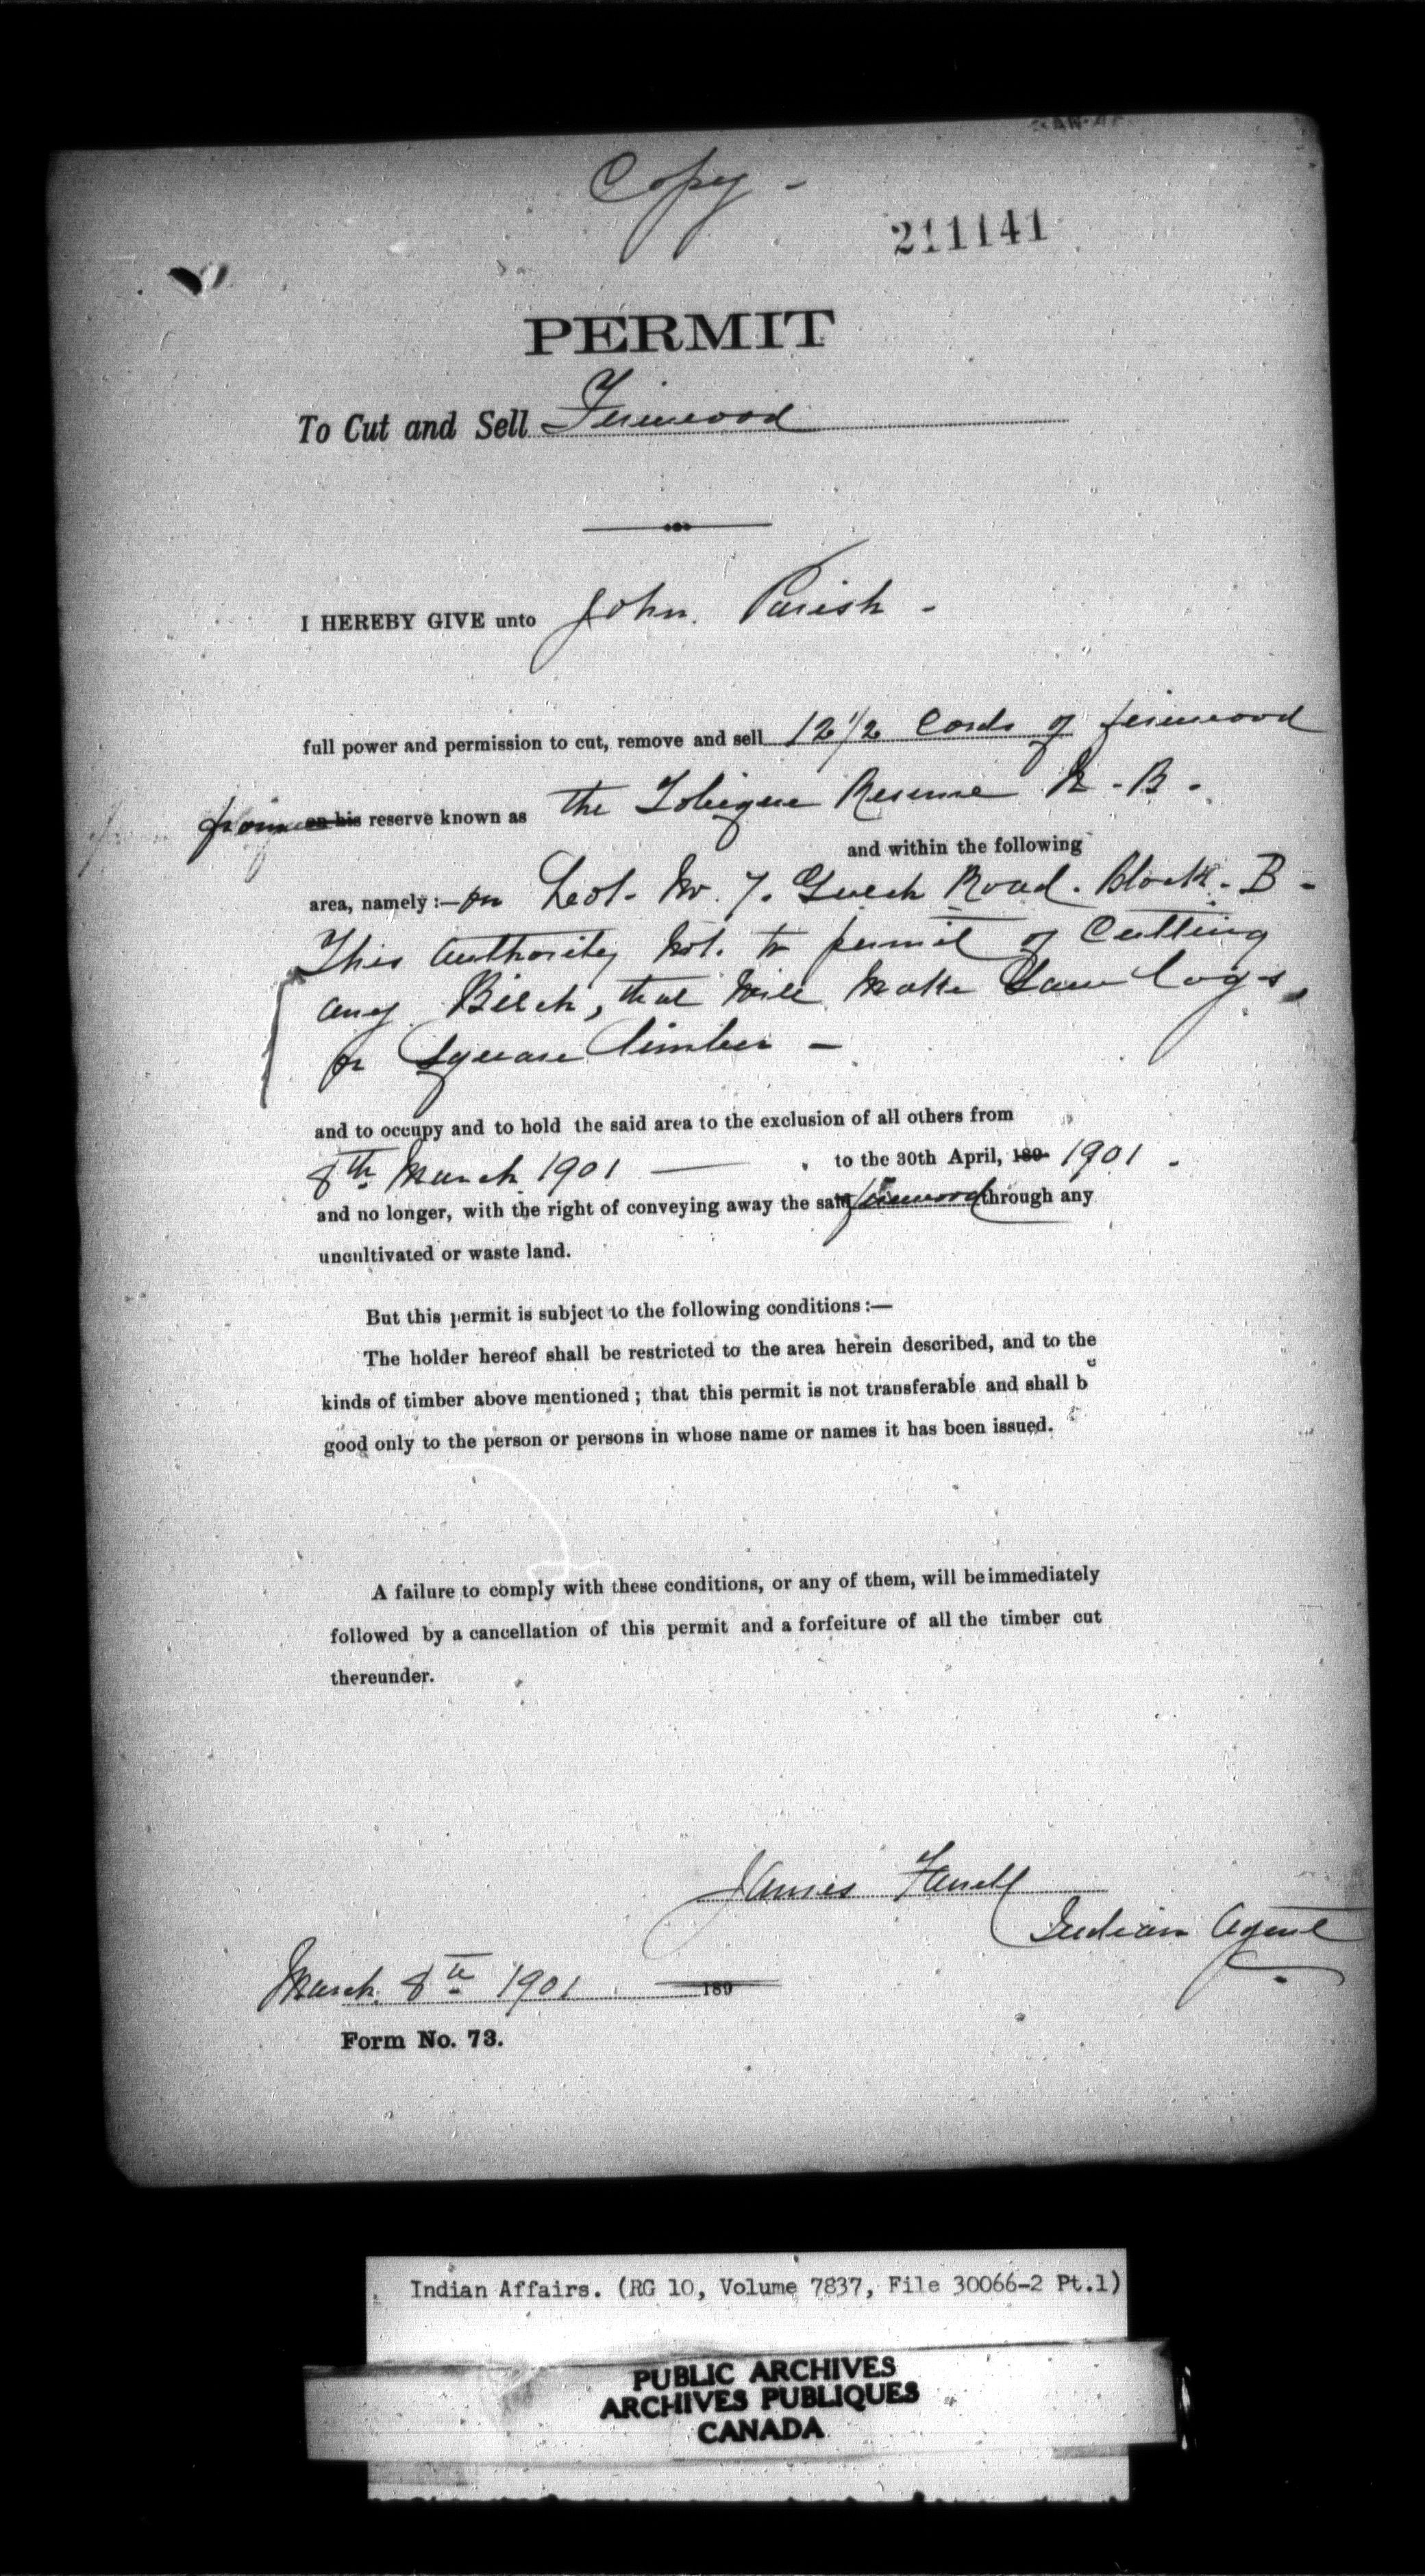 Copy -
211141
PERMIT
To Cut and Sell Firewood
I HEREBY GIVE unto John Parish -
full power and permission to cut, remove and sell 12 1/2 Cords of firewood
from on his reserve known as the Tobique Reserve N - B -
and within the following
area, namely :— on Lot. No. 7. Road. Block. B -
This authority Not. to permit of Cutting
any Birch, that will make Saw logs,
or Square timber —
and to occupy and to hold the said area to the exclusion of all others from
8th March 1901 — to the 30th April, 189 1901 -
and no longer, with the right of conveying away the said firewood through any
uncultivated or waste land.
But this permit is subject to the following conditions :—
The holder hereof shall be restricted to the area herein described, and to the
kinds of timber above mentioned ; that this permit is not transferable and shall be
good only to the person or persons in whose name or names it has been issued.
A failure to comply with these conditions, or any of them, will be immediately
followed by a cancellation of this permit and a forfeiture of all the timber cut
thereunder.
James Farrell
Indian Agent
March 8th 1901 189
Form No. 73.
Indian Affairs. (RG 10, Volume 7837, File 30066-2 Pt.1)
PUBLIC ARCHIVES
ARCHIVES PUBLIQUES
CANADA